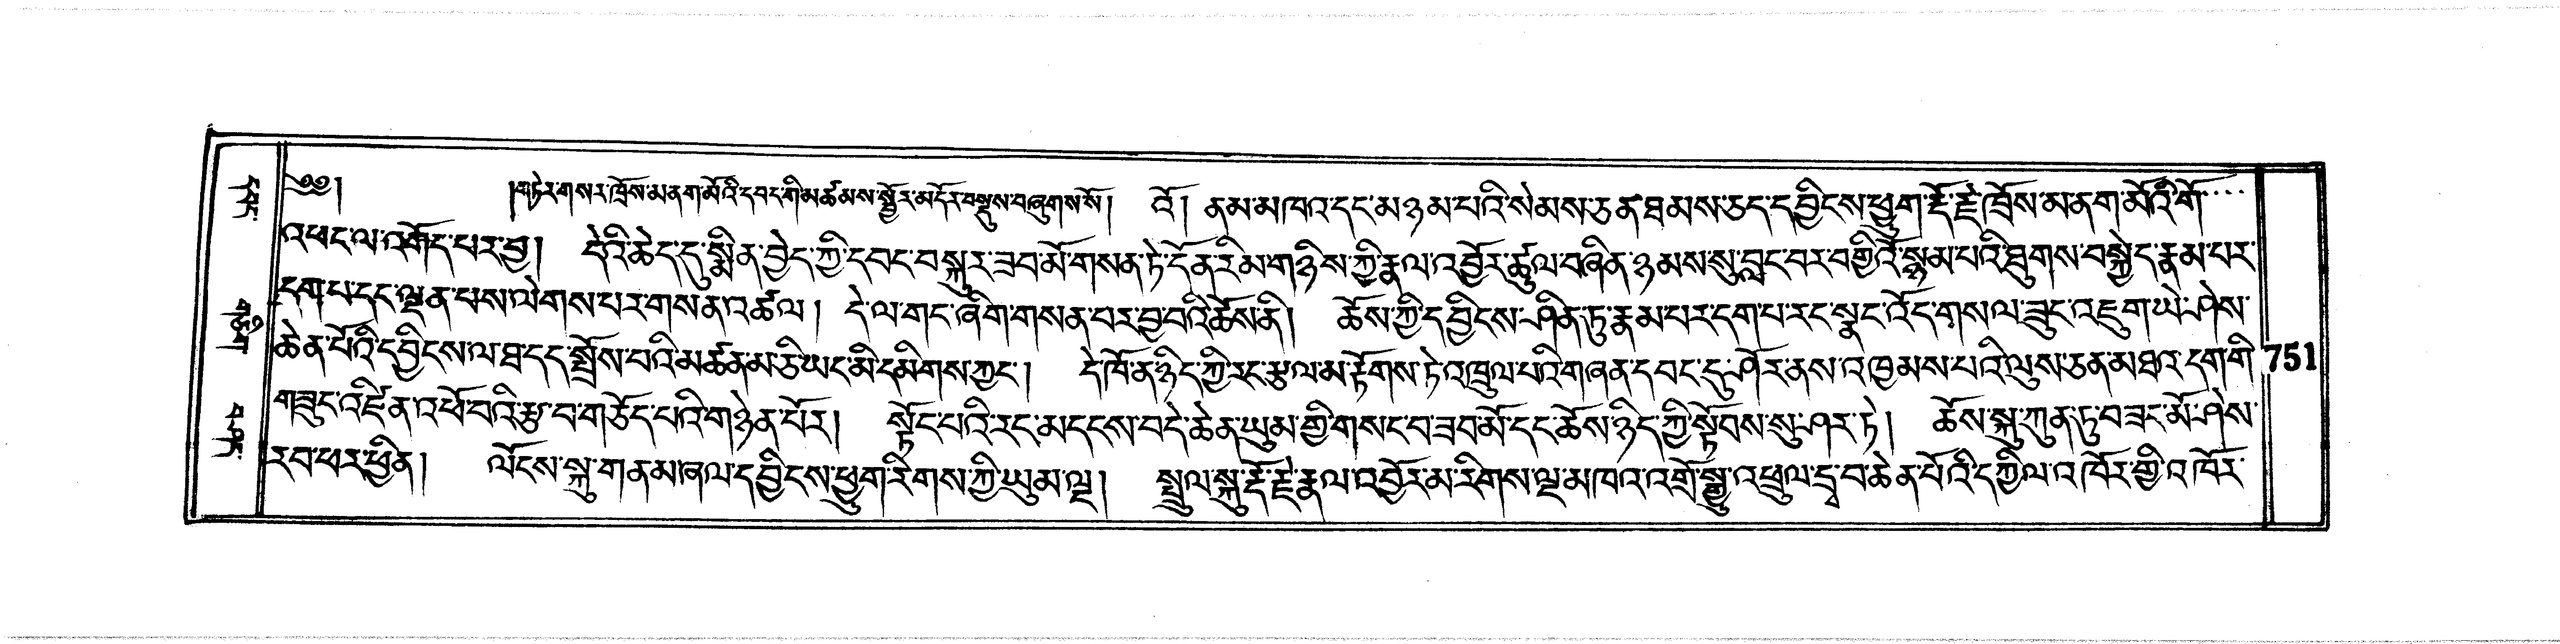 ༄༅། །གཏེར་གསར་ཁྲོས་མ་ནག་མོའི་དབང་གི་མཚམས་སྦྱོར་མདོར་བསྡུས་བཞུགས་སོ། བོ། ནམ་མཁའ་དང་མཉམ་པའི་སེམས་ཅན་ཐམས་ཅད་དབྱིངས་ཕྱུག་རྡོ་རྗེ་ཁྲོས་མ་ནག་མོའི་གོ་
འཕང་ལ་འགོད་པར་བྱ། དེའི་ཆེད་དུ་སྨིན་བྱེད་ཀྱི་དབང་བསྐུར་ཟབ་མོ་གསན་ཏེ་དོན་རིམ་གཉིས་ཀྱི་རྣལ་འབྱོར་ཚུལ་བཞིན་ཉམས་སུ་བླང་བར་བགྱིའོ་སྙམ་པའི་ཐུགས་བསྐྱེད་རྣམ་པར་
དག་པ་དང་ལྡན་པས་ལེགས་པར་གསན་འཚལ། དེ་ལ་གང་ཞིག་གསན་བར་བྱ་བའི་ཆོས་ནི། ཆོས་ཀྱི་དབྱིངས་ཤིན་ཏུ་རྣམ་པར་དག་པ་རང་སྣང་འོད་གསལ་ཟུང་འཇུག་ཡེ་ཤེས་
ཆེན་པོའི་དབྱིངས་ལ་ཐ་དད་སྤྲོས་བའི་མཚན་མ་ཅི་ཡང་མི་དམིགས་ཀྱང་། དེ་ཁོ་ན་ཉིད་ཀྱི་རང་རྩལ་མ་རྟོགས་ཏེ་འཁྲུལ་པའི་གཞན་དབང་དུ་ཤོར་ནས་འཁྱམས་པའི་ལུས་ཅན་མཐའ་དག་གི 751
གཟུང་འཛིན་འཕོ་བའི་རྩ་བ་གཅོད་པའི་གཉེན་པོར། སྟོང་པའི་རང་མདངས་བདེ་ཆེན་ཡུམ་གྱི་གསང་བ་ཟབ་མོ་དང་ཆོས་ཉིད་ཀྱི་སྟོབས་སུ་ཤར་ཏེ། ཆོས་སྐུ་ཀུན་ཏུ་བཟང་མོ་ཤེས་
རབ་ཕར་ཕྱིན། ལོངས་སྐུ་གནམ་ཞལ་དབྱིངས་ཕྱུག་རིགས་ཀྱི་ཡུམ་ལྔ། སྤྲུལ་སྐུ་རྡོ་རྗེ་རྣལ་འབྱོར་མ་རིགས་ལྔ་མཁའ་འགྲོ་སྒྱུ་འཕྲུལ་དྲྭ་བ་ཆེན་པོའི་དཀྱིལ་འཁོར་གྱི་འཁོར་